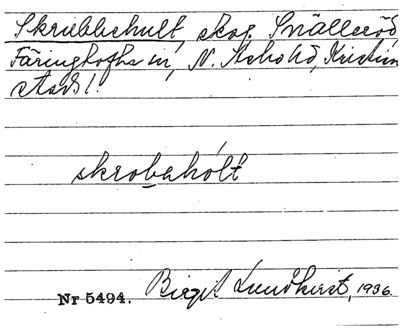 Skrubbhult, skog. Snälleröd,
Färingtofta sn, N. Åsbo hd, Kristian
stads l.
skrobahólt
Nr 5494. Birgit Lundkvist, 1936.